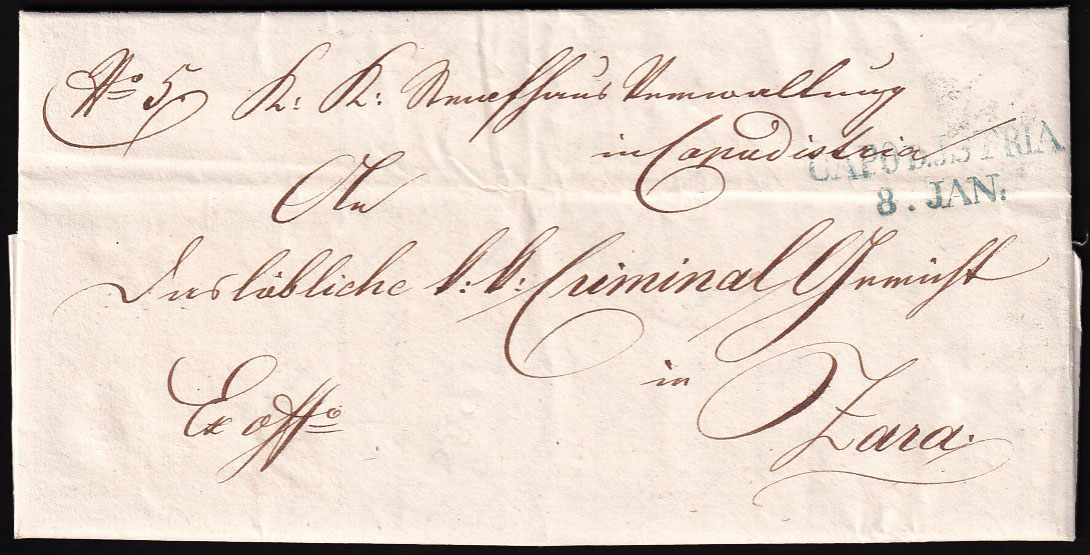 No 5 K: K: Strafhaus Verwaltung
in Capodistria
CAPO D'ISTRIA
8. JAN:
An
Das löbliche k: k: Criminal Gericht
in
Zara.
Ex offo